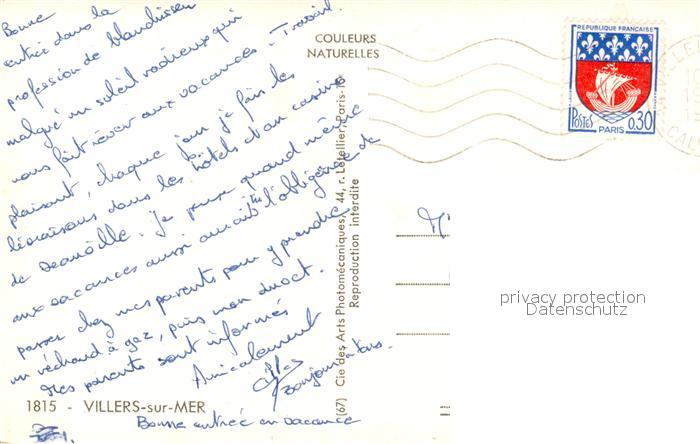 Bonne
entrée dans la
profession de blanchisseur
malgré un soleil radieux qui
nous fait rêver aux vacances - Travail
plaisant, chaque jour je fais les
livraisons dans les hôtels et au casino
de Deauville. Je pense quand même
aux vacances aussi aurais tu l'obligeance de
passer chez mes parents pour y prendre
un réchaud à gaz, puis mon duvet.
Mes parents sont informés
Amicalement
Gilles
Bonjour à tous.
1815 - VILLERS-sur-MER
Bonne entrée en vacance
(67) Cie des Arts Photomécaniques, 44, r. Letellier, Paris-15e
Reproduction interdite
COULEURS
NATURELLES
REPUBLIQUE FRANÇAISE
POSTES
0,30
PARIS
M
privacy protection
Datenschutz